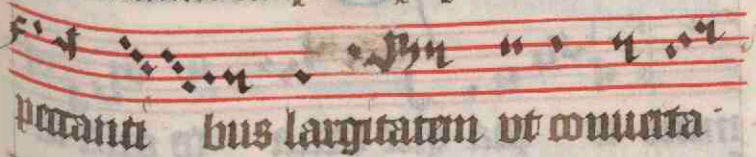 peccanti bus largitatem vt conuerta